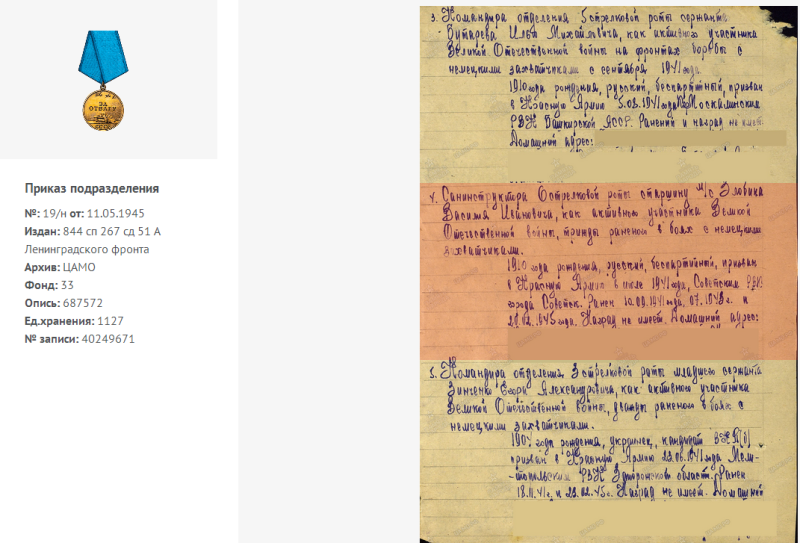 ЗА
ОТВАГУ
Приказ подразделения
№: 19/н от: 11.05.1945
Издан: 844 сп 267 сд 51 А
Ленинградского фронта
Архив: ЦАМО
Фонд: 33
Опись: 687572
Ед.хранения: 1127
№ записи: 40249671
3. Командира отделения 5 стрелковой роты сержанта
Бутарева Илью Михайловича, как активного участника
Великой Отечественной войны на фронтах борьбы с
немецкими захватчиками с сентября 1941 года.
1910 года рождения, русский, беспартийный, призван
в Красную Армию 5.08.1941 года
РВК Башкирской АССР. Ранений и наград не имеет.
Домашний адрес:
4. Санинструктора стрелковой роты старшину м/с Зловина
Василия Ивановича, как активного участника Великой
Отечественной войны, трижды раненого в боях с немецкими
захватчиками.
1910 года рождения, русский, беспартийный, призван
в Красную Армию в июле 1941 года, Советским РВК
города Советск. Ранен 10.09.1941 года, 07.1943 г. и
.02.1945 года. Наград не имеет. Домашний адрес:
5. Командира отделения 3 стрелковой роты младшего сержанта
Зинченко Егора Александровича, как активного участника
Великой Отечественной войны, дважды раненого в боях с
немецкими захватчиками.
1907 года рождения, украинец, кандидат ВКП(б),
призван в Красную Армию 23.06.1941 года Мели-
-топольским РВК Запорожской области. Ранен
18.11.41 г. и 23.02.45 г. Наград не имеет. Домашний